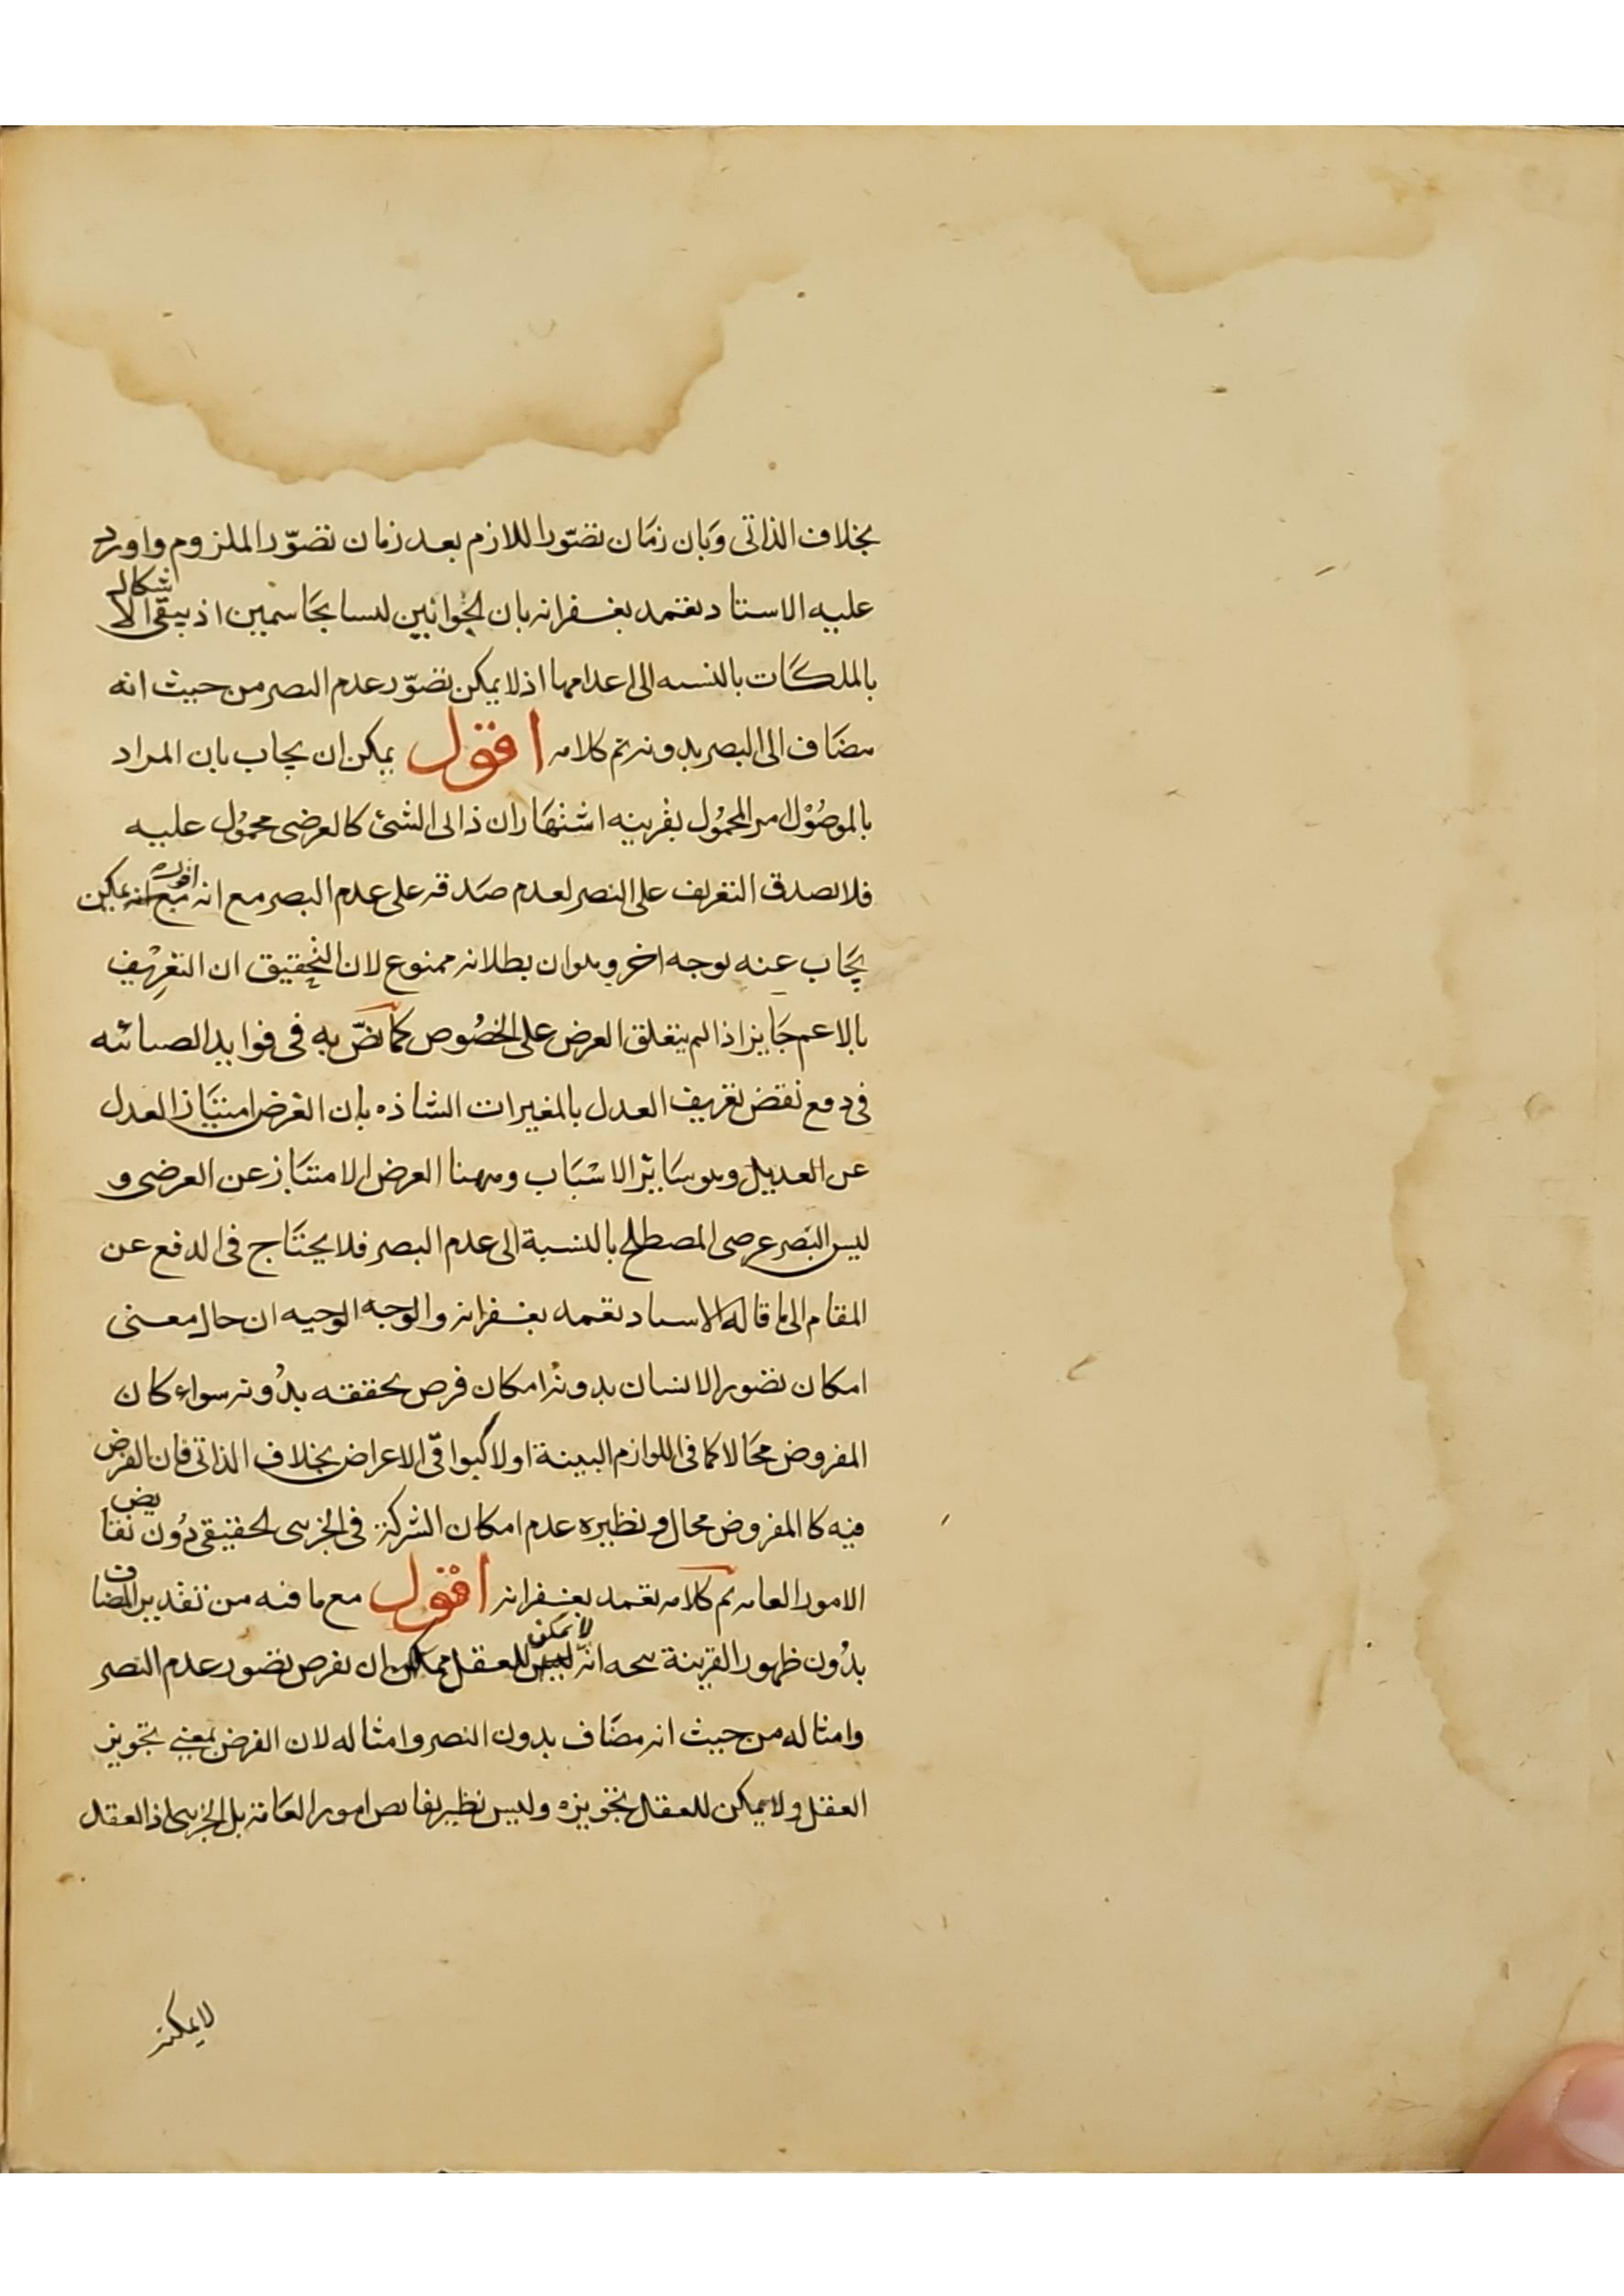 بخلاف الذاتى وبان زمان تصوّر اللازم بعد زمان تصوّر الملزوم واورد
عليه الاستاد تغمد بغفرانه بان الجوابين ليسا بحاسمين اذ يبقى الاشكال
بالملكات بالنسبه الى اعدامها اذ لا يمكن تصوّر عدم البصر من حيث انه
مضاف الى البصر بدونه تم كلامه اقول يمكن ان يجاب بان المراد
بالموصول امر المحمول بقرينه اشتهار ان ذاتى الشئ كالعرضى محمول عليه
فلا يصدق التعريف على البصر لعدم صدقه على عدم البصر مع انه يمكن
يجاب عنه بوجه اخر وهو ان بطلانه ممنوع لان التحقيق ان التعريف
بالاعم جايز اذا لم يتعلق الغرض على الخصوص كما نصّ به فى فوايد الضيائيه
فى دفع نقض تعريف العدل بالمغيرات الشاذه بان الغرض امتياز العدل
عن العديل وهو سائر الاسباب وههنا الغرض الامتياز عن العرضى و
ليس البصر عرضى المصطلح بالنسبة الى عدم البصر فلا يحتاج فى الدفع عن
المقام الى ما قاله الاستاد تغمد بغفرانه والوجه الوجيه ان حال معنى
امكان تصور الانسان بدونه امكان فرض تحققه بدونه سواء كان
المفروض محالا كما فى اللوازم البينة او لا كبواقى الاعراض بخلاف الذاتى فان الفرض
فيه كالمفروض محال ونظيره عدم امكان الشركة فى الجزئى الحقيقى دون نقايض
الامور العامه تم كلامه تغمد بغفرانه اقول مع ما فيه من تقدير المضاف
بدون ظهور القرينة انه لا يمكن للعقل ان يفرض تصور عدم البصر
وامثاله من حيث انه مضاف بدون البصر وامثاله لان الفرض بمعنى تجويز
العقل ولا يمكن للعقل تجويزه وليس نظير نقايص امور العامة بل الجزئى اذ العقل
لا يمكنه